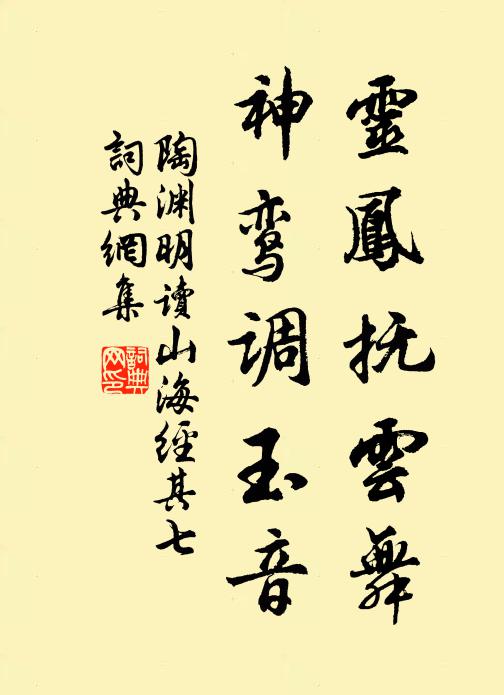 靈鳳抚雲舞
神鸾调玉音
陶渊明读山海经其七
詞典網集
詞典網印